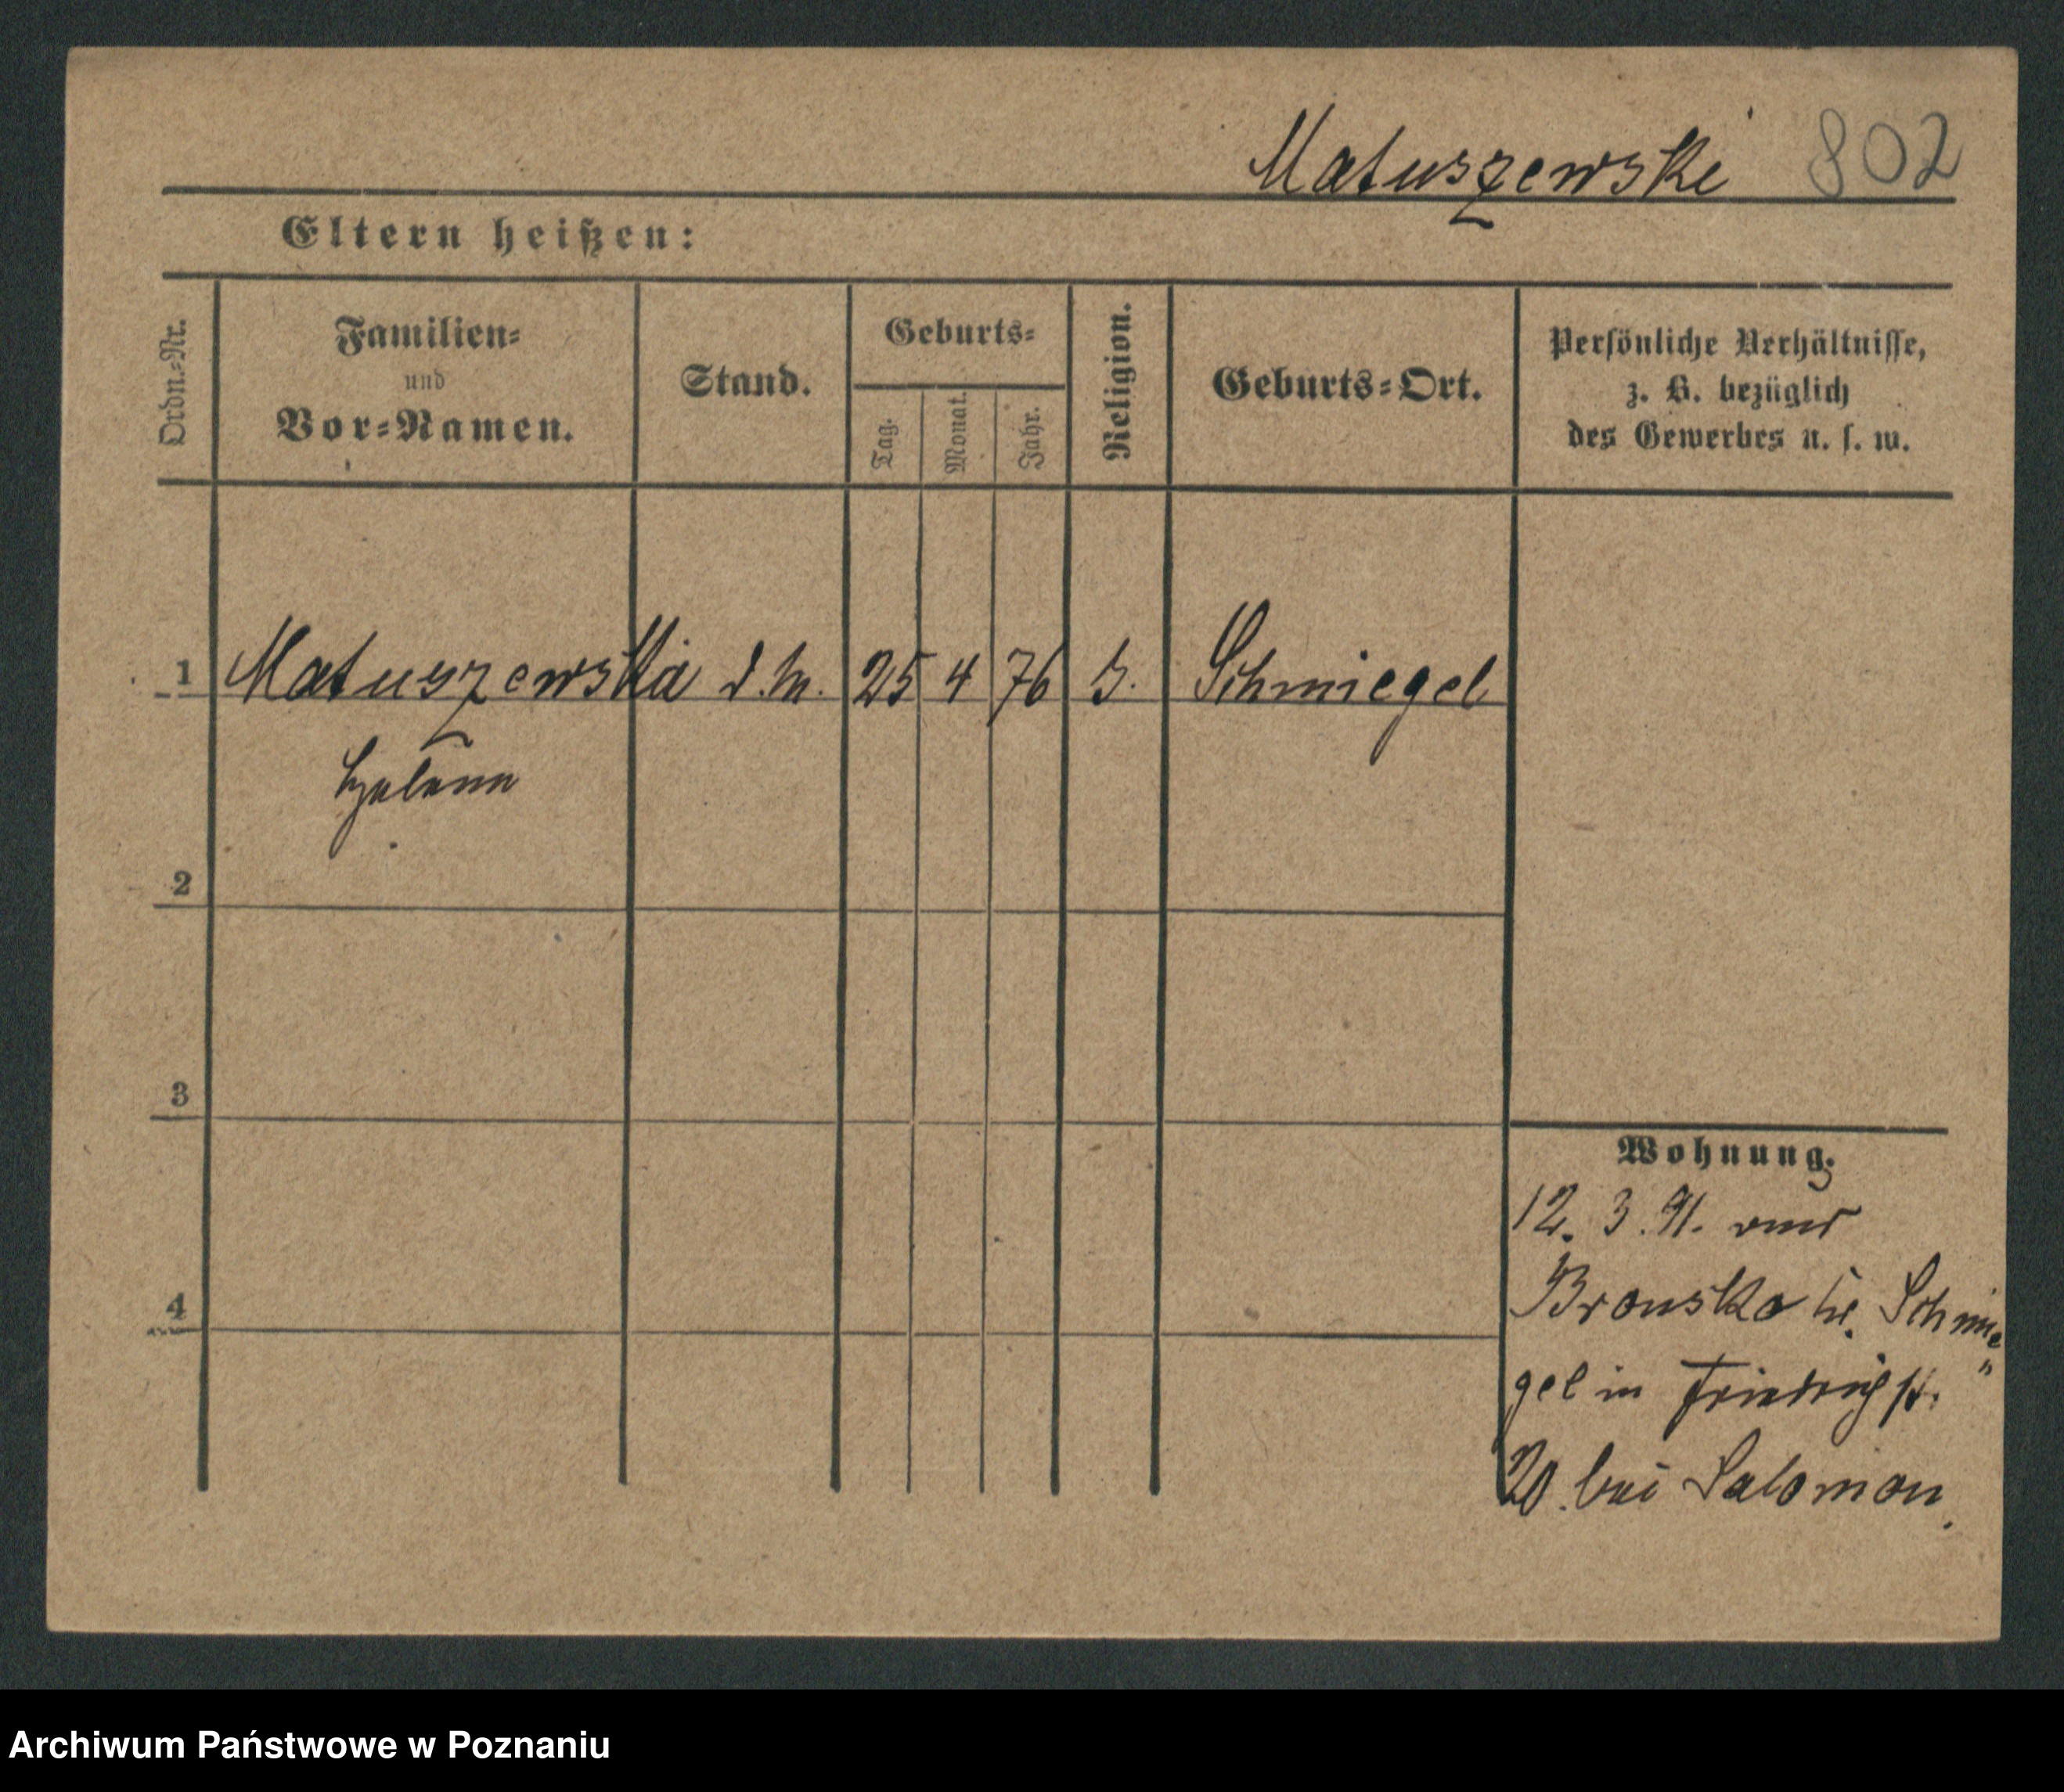 Matuszewski 802
Eltern heißen:
Ordn.-Nr.
Familien-
und
Vor-Namen.
Stand.
Geburts-
Tag.
Monat.
Jahr.
Religion.
Geburts-Ort.
Persönliche Verhältnisse,
z. B. bezüglich
des Gewerbes u. s. w.
1 Matuszewska d. M. 25 4 76 Schmiegel
Helene
2
3
4
Wohnung.
12. 3. 91. aus
Bronsko Kr. Schmie
gel in Friedrichst.
20. bei Salomon.
Archiwum Państwowe w Poznaniu